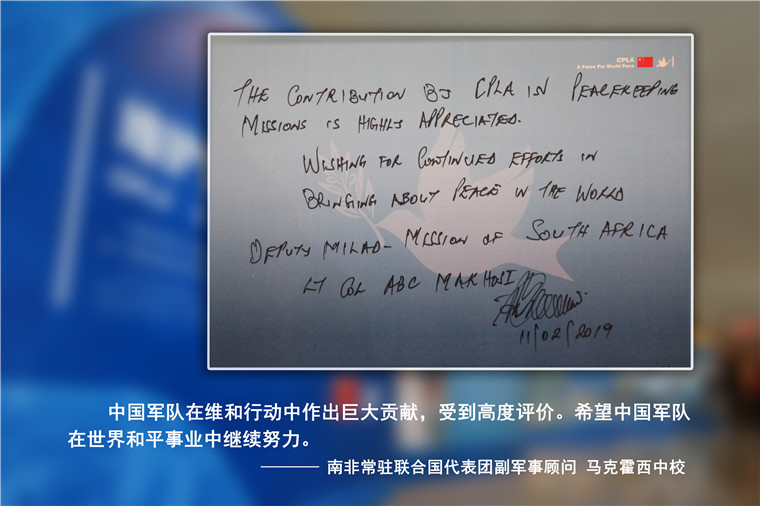 CPLA
A Force For World Peace
THE CONTRIBUTION BY CPLA IN PEACEKEEPING
MISSIONS IS HIGHLY APPRECIATED.
WISHING FOR CONTINUED EFFORTS IN
BRINGING ABOUT PEACE IN THE WORLD
DEPUTY MILAD - MISSION OF SOUTH AFRICA
LT COL ABC MAKHOSI
11/02/2019
中国军队在维和行动中作出巨大贡献，受到高度评价。希望中国军队
在世界和平事业中继续努力。
——— 南非常驻联合国代表团副军事顾问 马克霍西中校